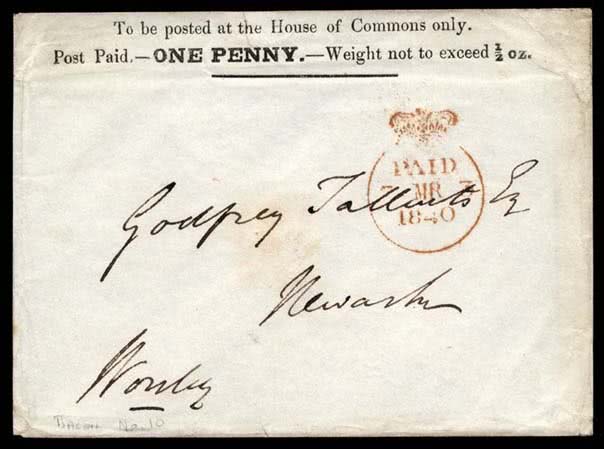 To be posted at the House of Commons only.
Post Paid.—ONE PENNY.—Weight not to exceed ½ oz.
PAID
7 MR 7
1840
Godfrey Tallents Esq
Newark
Worsley
Bacon No. 10